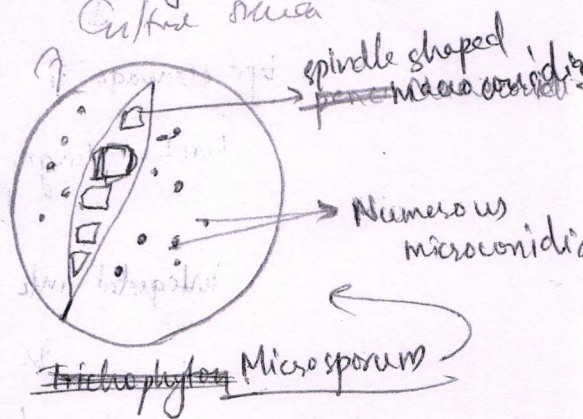 Culture smear
spindle shaped
macroconidia
Numerous
microconidia
Trichophyton Microsporum